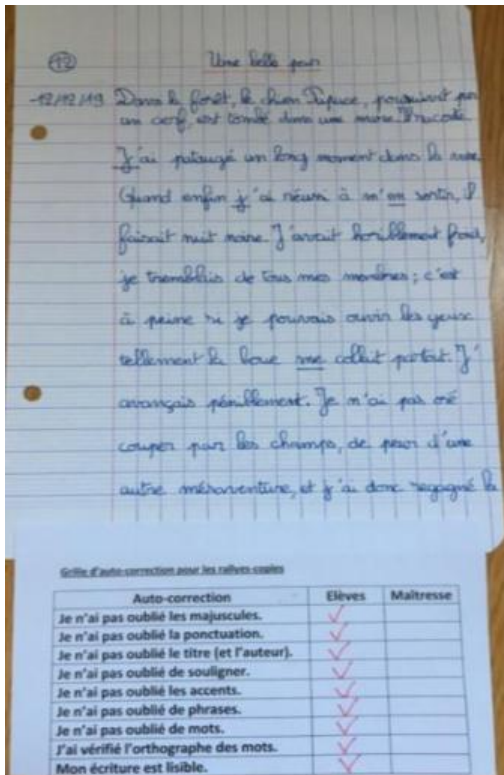 12
Une belle peur
12/12/19 Dans la forêt, le chien Pipuce, poursuivi par
un cerf, est tombé dans une mare. Il raconte
J'ai pataugé un long moment dans la
Quand enfin j'ai réussi à m'en sortir, il
faisait nuit noire. J'avait horriblement froid,
je tremblais de tous mes membres ; c'est
à peine si je pouvais ouvrir les yeux
tellement la boue me collait partout. J'
avançais péniblement. Je n'ai pas osé
couper par les champs, de peur d'une
autre mésaventure, et j'ai donc regagné la
Grille d'auto-correction pour les rallyes-copies
Auto-correction Elèves Maîtresse
Je n'ai pas oublié les majuscules.
Je n'ai pas oublié la ponctuation.
Je n'ai pas oublié le titre (et l'auteur).
Je n'ai pas oublié de souligner.
Je n'ai pas oublié les accents.
Je n'ai pas oublié de phrases.
Je n'ai pas oublié de mots.
J'ai vérifié l'orthographe des mots.
Mon écriture est lisible.